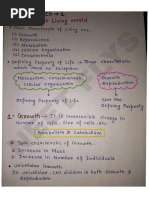 Ch → 1
Living World
* Main Characters of Living org.
(1) Growth
(2) Reproduction
(3) Metabolism
(4) Cellular Organisation
(5) Consciousness
* Defining Property of Life → Those characteristic which have no Exception.
Metabolism, Consciousness, Cellular Organisation
Growth, Reproduction
Defining Property of Life
Not the Defining Property
1* Growth → It is irreversible change in number of cells, size of cells etc.
Anabolism > Catabolism
* Two characteristic of Growth
1. Increase in Mass
2. Increase in Number of Individuals
* Unicellular Growth
In unicellular, cell division is both Growth & Reproduction.